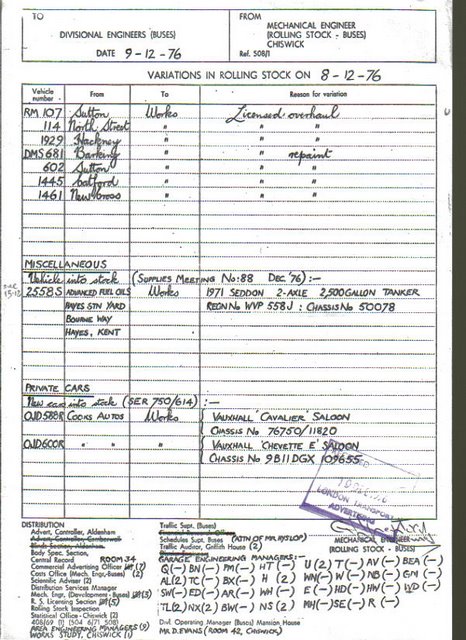 TO
DIVISIONAL ENGINEERS (BUSES)
DATE 9-12-76
FROM
MECHANICAL ENGINEER
(ROLLING STOCK - BUSES)
CHISWICK
Ref. 508/1
VARIATIONS IN ROLLING STOCK ON 8-12-76
Vehicle number From To Reason for variation
RM 107 Sutton Works Licensed overhaul
114 North Street " " "
1929 Hackney " " "
DMS 681 Barking " " repaint
602 Sutton " " "
1445 Catford " " "
1461 New Cross " " "
MISCELLANEOUS
Vehicle into stock (SUPPLIES MEETING No: 88 DEC. '76) :-
2558S ADVANCED FUEL OILS Works 1971 SEDDON 2-AXLE 2,500 GALLON TANKER
HAYES STN YARD REGN No WVP 558J : CHASSIS No 50078
BOURNE WAY
HAYES, KENT
PRIVATE CARS
New cars into stock (SER 750/614) :-
OJD588R COOKS AUTOS Works { VAUXHALL 'CAVALIER' SALOON
CHASSIS No 76750/11820
OJD600R " " " { VAUXHALL 'CHEVETTE E' SALOON
CHASSIS No 9B11DGX 109655
LONDON TRANSPORT
ADVERTISING
DISTRIBUTION
Advert. Controller, Aldenham
Advert. Controller, Camberwell
Body Spec. Section
Central Record ROOM 34
Commercial Advertising Officer (7)
Costs Office (Mech. Engr.-Buses) (2)
Scientific Adviser (2)
Mech. Engr. (Development-Buses) (3)
R. S. Licensing Section (5)
Rolling Stock Inspection
Statistical Office - Chiswick (2)
408/69 (1) (504 6/71 508)
AREA ENGINEERING MANAGERS (9)
WORKS STUDY, CHISWICK (1)
Traffic Supt. (Buses)
Schedules Supt. Buses (ATTN OF MR HYSLOP)
Traffic Auditor, Griffith House (2)
GARAGE ENGINEERING MANAGERS :-
Divl. Operating Manager (Buses) Mansion House
MR D. EVANS (ROOM 42, CHISWICK)
MECHANICAL ENGINEER
(ROLLING STOCK - BUSES)